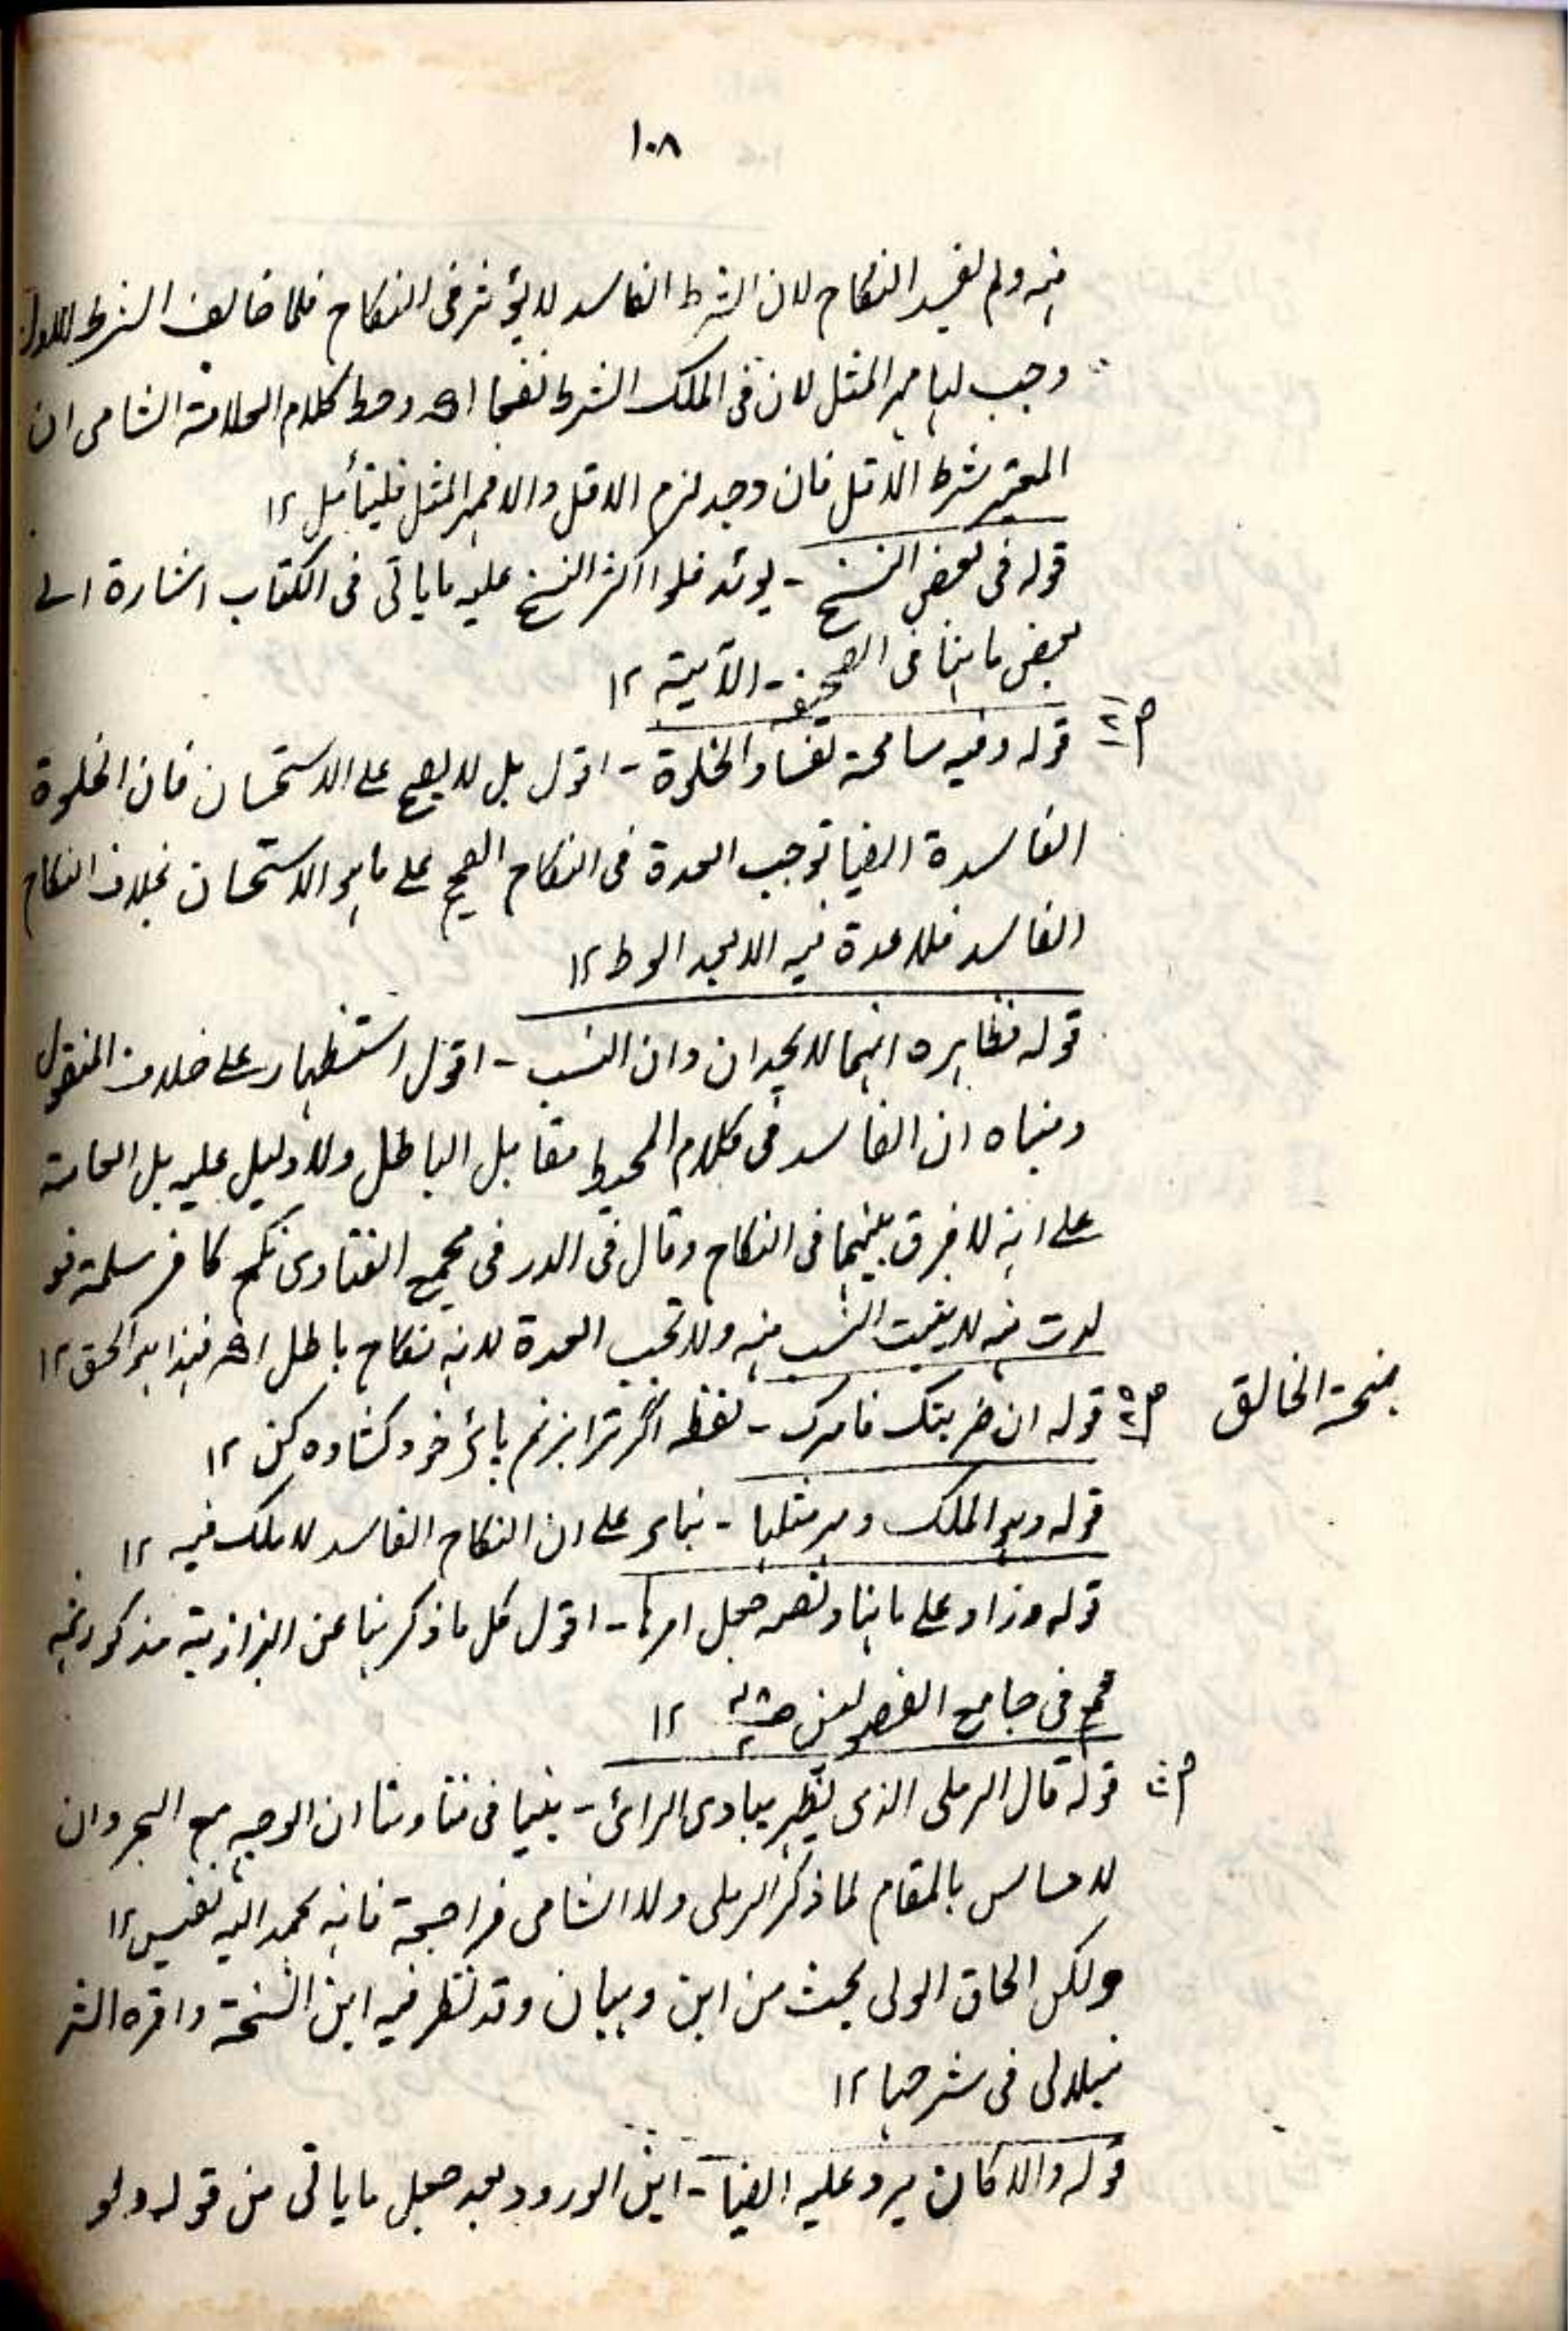 ١٠٨
منه ولم يفسد النكاح لان الشرط الفاسد لا يؤثر فى النكاح فلما خالف الشرط الاول
وجب لها مهر المثل لان فى الملك الشرط نفعا اھ و كلام العلامة الشامى ان
المعتبر شرط الاقل فان وجد لزم الاقل والا فمهر المثل فليتأمل ١٢
قوله فى بعض النسخ - يوئد اكثر النسخ عليه ما ياتى فى الكتاب اشارة الى
بعض ما هنا فى الصحيفة الآتية ١٢
قوله وفيه مسامحة لفساد الخلوة - اقول بل لا يصح على الاستحسان فان الخلوة
الفاسدة ايضا توجب العدة فى النكاح الصحيح على ما هو الاستحسان بخلاف النكاح
الفاسد فلا عدة فيه الا بعد الوط ١٢
قوله فظاهره انهما لا يحدان وان النسب - اقول استظهار على خلاف المنقول
ومبناه ان الفاسد فى كلام المحيط مقابل الباطل ولا دليل عليه بل العامة
على انه لا فرق بينهما فى النكاح وقال فى الدر فى مجمع الفتاوى نكح كافر مسلمة فو
لدت منه لا يثبت النسب منه ولا تجب العدة لانه نكاح باطل اھ فهذا هو الحق ١٢
منحة الخالق
قوله ان ضربتك فامرك - لفظه اگر ترا بزنم پائے خود كشاده كن ١٢
قوله وهو الملك ومهر مثلها - بناء على ان النكاح الفاسد لا ملك فيه ١٢
قوله وزاد على ما هنا ونصه جعل امرها - اقول كل ما ذكر هنا عن البزازية مذكور فيه
فى جامع الفصولين ١٢
قوله قال الرملى الذى يظهر ببادى الرائ - بينا فى فتاوينا ان الوجه مع البحر وان
لا مساس بالمقام لما ذكر الرملى ولا الشامى فراجعه فانه بحمد الله نفيس ١٢
ولكن الحاق الولى بحث من ابن وهبان وقد نظر فيه ابن الشحنة واقره الشر
نبلالى فى شرحها ١٢
قوله والا كان يرد عليه ايضا - اين الورود بعد جعل ما ياتى من قوله ولو